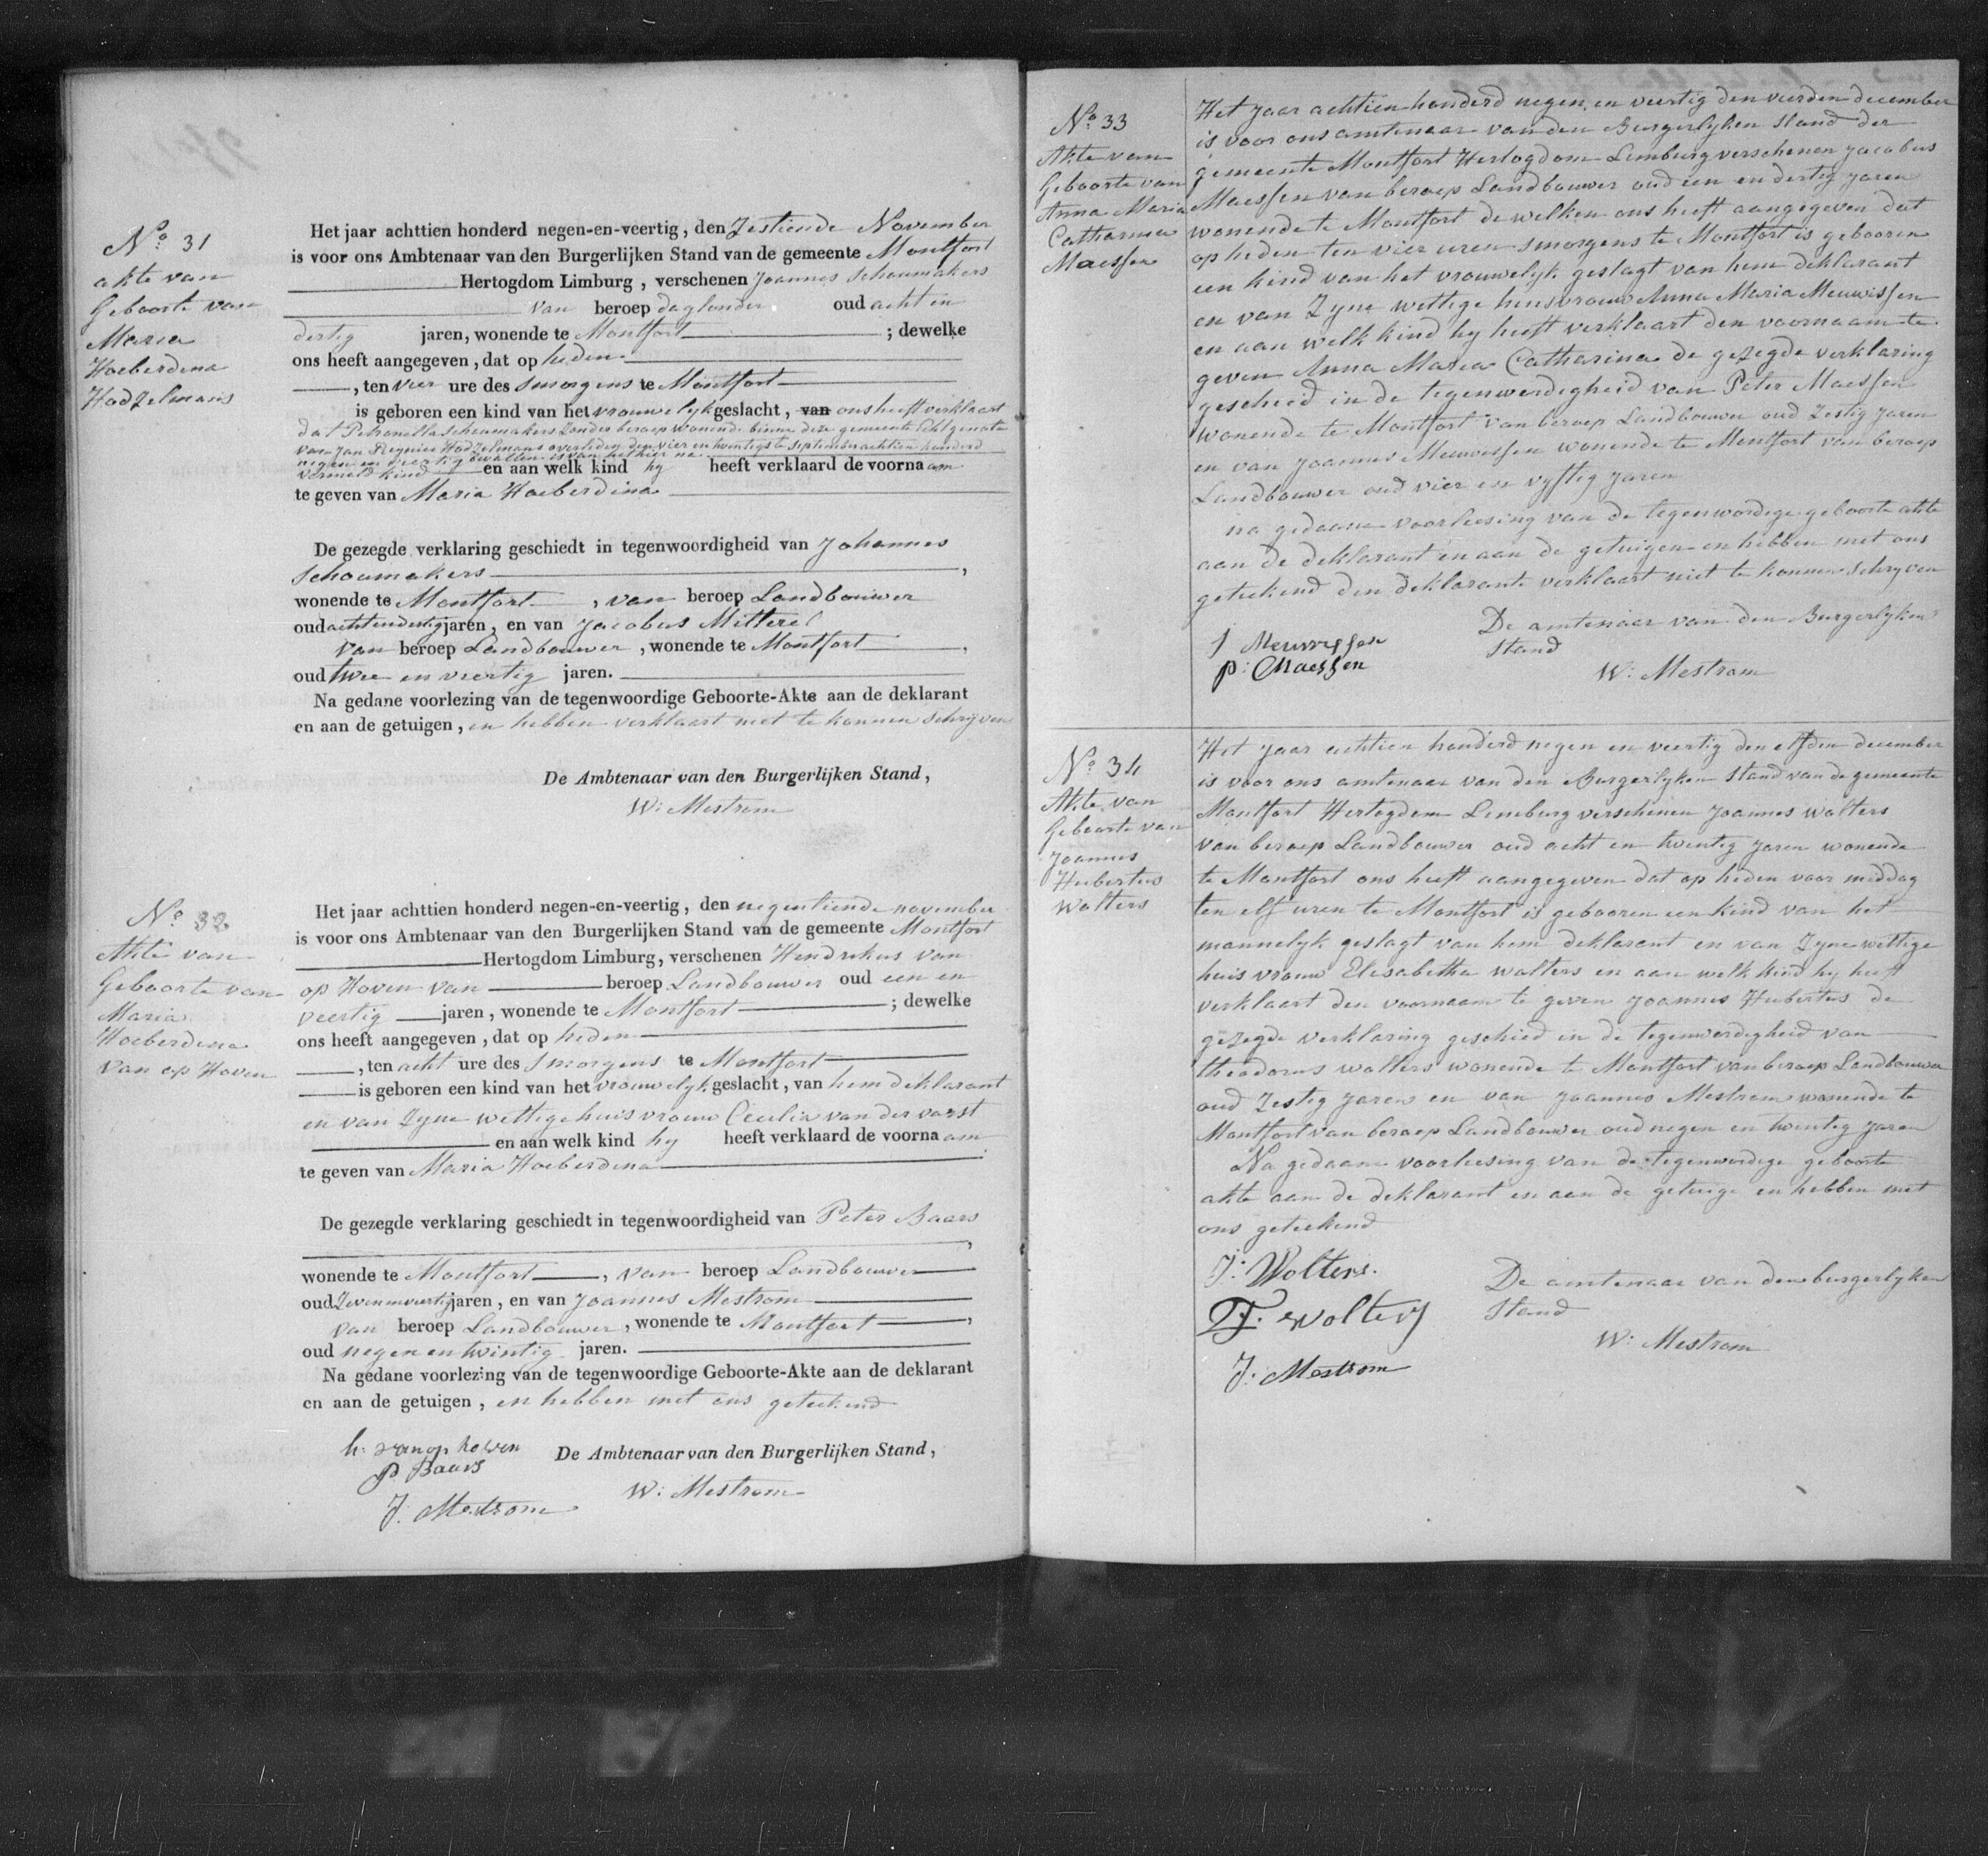 Nº 31
akte van
Geboorte van
Maria
Hoeberdina
Hodzelmans
Het jaar achttien honderd negen-en-veertig, den Zestiende November
is voor ons Ambtenaar van den Burgerlijken Stand van de gemeente Montfort
Hertogdom Limburg, verschenen Joannes Schoumakers
van beroep daglonder oud acht en
dertig jaren, wonende te Montfort ; dewelke
ons heeft aangegeven, dat op heden
, ten vier ure des smorgens te Montfort
is geboren een kind van het vrouwelyk geslacht, van ons heeft verklaart
dat Petronella Schoumakers Zonder beroep wonend binne deze gemeente Echtgenote
van Jan Reynier Hodzelmans overleden den vier en twintigste september achtien honderd
negen en veertig bevallen is van het hier na
vermeld kind en aan welk kind hy heeft verklaard de voornaam
te geven van Maria Hoeberdina
De gezegde verklaring geschiedt in tegenwoordigheid van Johannes
Schoumakers ,
wonende te Montfort , van beroep Landbouwer
oud achtendertig jaren, en van Jacobus Mitterel
van beroep Landbouwer, wonende te Montfort ,
oud twee en veertig jaren.
Na gedane voorlezing van de tegenwoordige Geboorte-Akte aan de deklarant
en aan de getuigen, en hebben verklaart niet te konnen schrijven
De Ambtenaar van den Burgerlijken Stand,
W: Mestrom
Nº 32
Akte van
Geboorte van
Maria
Hoeberdina
Van op Hoven
Het jaar achttien honderd negen-en-veertig, den negentiende november
is voor ons Ambtenaar van den Burgerlijken Stand van de gemeente Montfort
Hertogdom Limburg, verschenen Hendrikus van
op Hoven van beroep Landbouwer oud een en
veertig jaren, wonende te Montfort ; dewelke
ons heeft aangegeven, dat op heden
, ten acht ure des smorgens te Montfort
is geboren een kind van het vrouwelyk geslacht, van hem deklarant
en van Zyne wettige huisvrouw Cecilia van der varst
en aan welk kind hy heeft verklaard de voornaam
te geven van Maria Hoeberdina
De gezegde verklaring geschiedt in tegenwoordigheid van Peter Baars
,
wonende te Montfort , van beroep Landbouwer
oud Zevenenveertig jaren, en van Joannes Mestrom
van beroep Landbouwer, wonende te Montfort ,
oud negen en twintig jaren.
Na gedane voorlezing van de tegenwoordige Geboorte-Akte aan de deklarant
en aan de getuigen, en hebben met ons geteekend
h: van op hoven
De Ambtenaar van den Burgerlijken Stand,
P: Baars
W: Mestrom
J: Mestrom
Nº 33
Akte van
Geboorte van
Anna Maria
Catharina
Maessen
Het jaar achtien honderd negen en veertig den vierden december
is voor ons amtenaar van den Burgerlyken Stand der
gemeente Montfort Hertogdom Limburg verschenen Jacobus
Maessen van beroep Landbouwer oud een en dertig jaren
wonende te Montfort de welken ons heeft aangegeven dat
op heden ten vier uren smorgens te Montfort is gebooren
een kind van het vrouwelyk geslagt van hem deklarant
en van Zyne wettige huisvrouw Anna Maria Meuwissen
en aan welk kind hy heeft verklaart den voornaam te
geven Anna Maria Catharina de gezegde verklaring
geschied in de tegenwerdigheid van Peter Maessen
wonende te Montfort van beroep Landbouwer oud Zestig jaren
en van Joannes Meuwissen wonende te Montfort van beroep
Landbouwer oud vier en vyftig jaren
na gedaane voorleesing van de tegenwordige geboorte akte
aan de deklarant en aan de getuigen en hebben met ons
geteekend den deklarante verklaart niet te konnen schryven
De amtenaar van den Burgerlyken
Stand
J Meuwissen
P: Maessen
W: Mestrom
Nº 34
Akte van
Geboorte van
Joannes
Hubertus
Wolters
Het jaar achtien honderd negen en veertig den elfden december
is voor ons amtenaar van den Burgerlyken Stand van de gemeente
Montfort Hertogdom Limburg verschenen Joannes Wolters
van beroep Landbouwer oud acht en twintig jaren wonende
te Montfort ons heeft aangegeven dat op heden voor middag
ten elf uren te Montfort is gebooren een kind van het
mannelyk geslagt van hem deklarant en van Zyne wettige
huis vrouw Elisabetha Wolters en aan welk kind hy heeft
verklaart den voornaam te geven Joannes Hubertus de
gezegde verklaring geschied in de tegenwerdigheid van
theodorus wolters wonende te Montfort van beroep Landbouwer
oud Zestig jaren en van Joannes Mestrom wonende te
Montfort van beroep Landbouwer oud negen en twintig jaren
Na gedaane voorleesing van de tegenwordige geboorte
akte aan de deklarant en aan de getuige en hebben met
ons geteekend
J: Wolters.
De amtenaar van den burgerlyken
Stand
T. wolters
W: Mestrom
J: Mestrom